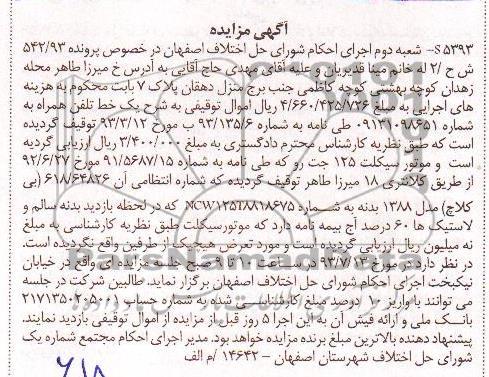 آگهی مزایده
S۵۳۹۳- شعبه دوم اجرای احکام شورای حل اختلاف اصفهان در خصوص پرونده ۵۴۲/۹۳
ش ح /۲ له خانم مینا قدیریان و علیه آقای مهدی حاج آقایی به آدرس خ میرزا طاهر محله
زهدان کوچه بهشتی کوچه کاظمی جنب برج منزل دهقان پلاک ۷ بابت محکوم به هزینه
های اجرایی به مبلغ ۴/۶۶۰/۴۲۵/۷۲۶ ریال اموال توقیفی به شرح یک خط تلفن همراه به
شماره ۰۹۱۳۱۰۹۸۶۵۱ طی نامه به شماره ۹۳/۱۳۵/۶ ب مورخ ۹۳/۳/۱۲ توقیف گردیده
است که طبق نظریه کارشناس محترم دادگستری به مبلغ ۳/۴۰۰/۰۰۰ ریال ارزیابی گردیده
است و موتور سیکلت ۱۲۵ جت رو که طی نامه به شماره ۹۱/۵۶۸۷/۱۵ مورخ ۹۲/۶/۲۷
از طریق کلانتری ۱۸ میرزا طاهر توقیف گردیده که شماره انتظامی آن ۶۱۸/۶۴۸۲۶ (بی
کلاچ) مدل ۱۳۸۸ بدنه به شماره NCW۱۲۵T۸۸۱۸۶۷۵ که در لحظه بازدید بدنه سالم و
لاستیک ها ۶۰ درصد آج بیمه نامه دارد که موتورسیکلت طبق نظریه کارشناسی به مبلغ
نه میلیون ریال ارزیابی گردیده است و مورد تعرض هیچیک از طرفین واقع نگردیده است.
در نظر دارد در مورخ ۹۳/۷/۱۳ در ساعت ۱۱ تا ۹ صبح جلسه مزایده ای واقع در خیابان
نیکبخت اجرای احکام شورای حل اختلاف اصفهان برگزار نماید. طالبین شرکت در جلسه
می توانند با واریز ۱۰ درصد مبلغ کارشناسی شده به شماره حساب ۲۱۷۱۳۵۰۲۰۵۰۰۱
بانک ملی و ارائه فیش آن به این اجرا ۵ روز قبل از مزایده از اموال توقیفی بازدید نمایند.
پیشنهاد دهنده بالاترین مبلغ برنده مزایده خواهد بود. مدیر اجرای احکام مجتمع شماره یک
شورای حل اختلاف شهرستان اصفهان - ۱۴۶۴۲ /م الف
۶/۸